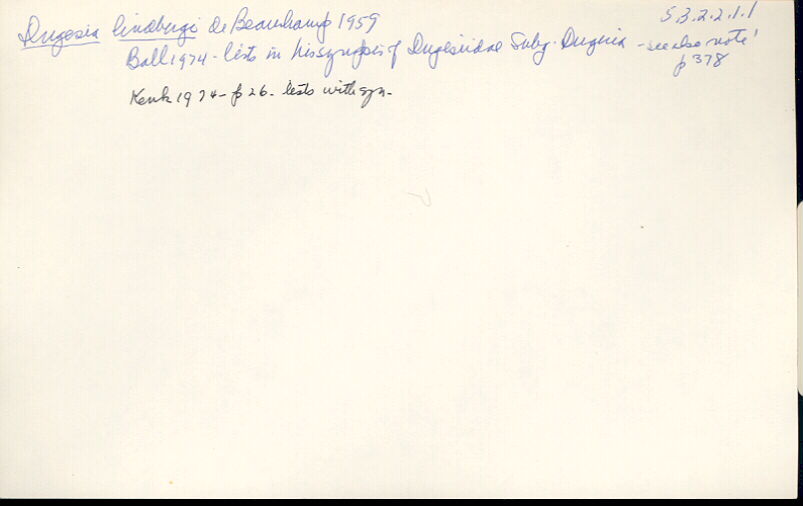 Dugesia lindbergi de Beauchamp 1959
5.3.2.2.1.1
Ball 1974 - lists in his synopsis of Dugesiidae Subg. Dugesia - see also note
p 378
Kenk 1974 - p 26. lists with syn.